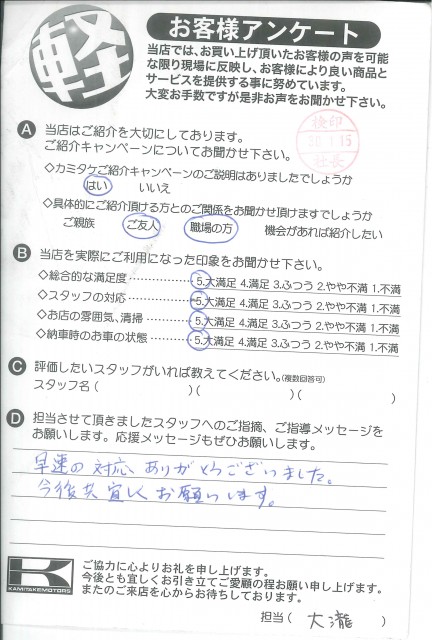 軽
お客様アンケート
当店では、お買い上げ頂いたお客様の声を可能
な限り現場に反映し、お客様により良い商品と
サービスを提供する事に努めています。
大変お手数ですが是非お声をお聞かせ下さい。
検印
30.1.15
社長
A 当店はご紹介を大切にしております。
ご紹介キャンペーンについてお聞かせ下さい。
◇カミタケご紹介キャンペーンのご説明はありましたでしょうか
はい いいえ
◇具体的にご紹介頂ける方とのご関係をお聞かせ頂けますでしょうか
ご親族 ご友人 職場の方 機会があれば紹介したい
B 当店を実際にご利用になった印象をお聞かせ下さい。
◇総合的な満足度 ·············· 5.大満足 4.満足 3.ふつう 2.やや不満 1.不満
◇スタッフの対応 ·············· 5.大満足 4.満足 3.ふつう 2.やや不満 1.不満
◇お店の雰囲気、清掃 ········ 5.大満足 4.満足 3.ふつう 2.やや不満 1.不満
◇納車時のお車の状態 ········ 5.大満足 4.満足 3.ふつう 2.やや不満 1.不満
C 評価したいスタッフがいれば教えてください。(複数回答可)
スタッフ名 ( )( )( )
D 担当させて頂きましたスタッフへのご指摘、ご指導メッセージを
お願いします。応援メッセージもぜひお願いします。
早速の対応、ありがとうございました。
今後共宜しくお願いします。
K
KAMITAKEMOTORS
ご協力に心よりお礼を申し上げます。
今後とも宜しくお引き立てご愛顧の程お願い申し上げます。
またのご来店を心からお待ちしております。
担当 ( 大瀧 )